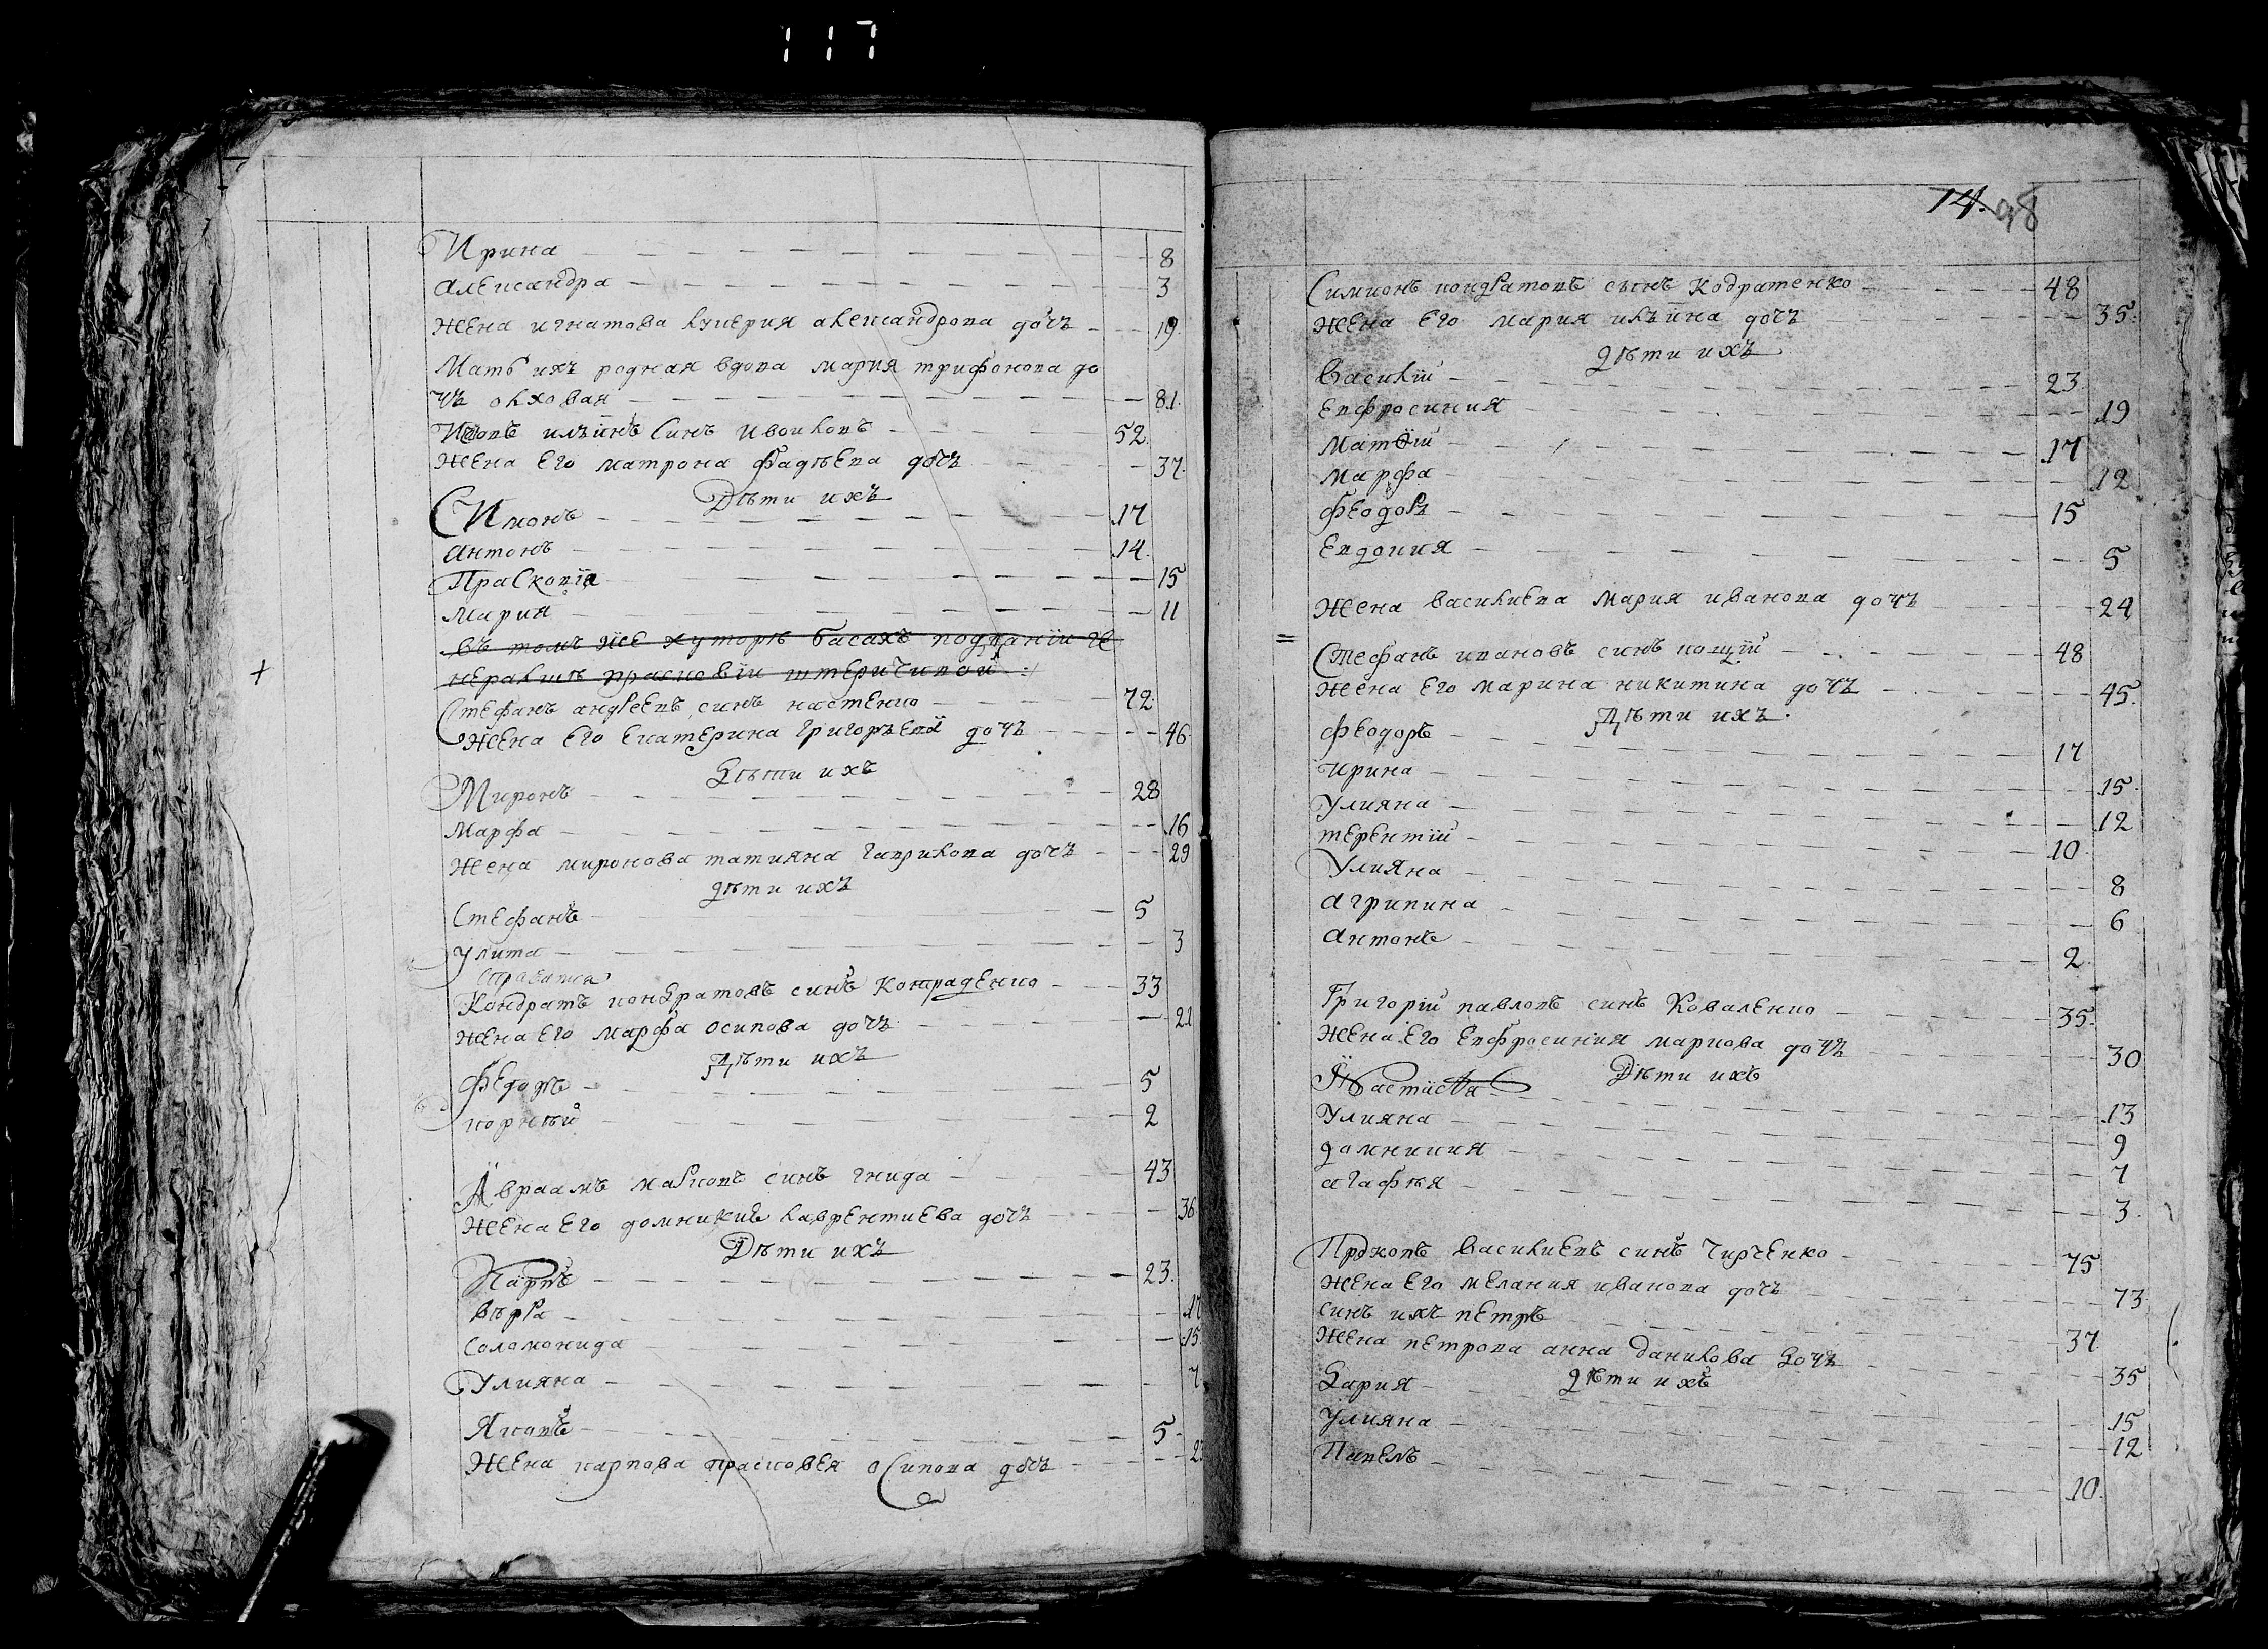 117
Ирина 8
александра 3
жена игнатова александрова дочъ 19
Мать ихъ родная вдова мария трифонова до
чъ олховая 81
илъинъ синъ Иволовъ 52
жена Его матрона фадѣева дочъ 37
Дѣти ихъ
Симонъ 17
антонъ 14
Прасковïа 15
Мария 11
въ томъ же хуторѣ басахъ подданïи ге
нералшѣ прасковïи штеричивой
Стефанъ андреевъ синъ костенко 72
жена Его Екатерина григоръева дочъ 46
Дѣти ихъ
Миронъ 28
Марфа 16
жена миронова татияна гаврилова дочъ 29
дѣти ихъ
Стефанъ 5
улита 3
Кондратъ кондратовъ синъ 33
жена Его марфа осипова дочъ 21
Дѣти ихъ
Федоръ 5
корнѣй 2
Авраамъ марковъ синъ гнида 43
жена Его домникия лаврентиева дочъ 36
Дѣти ихъ
Карпъ 23
вѣра 17
соломонида 15
Улияна 7
Яковъ 5
жена карпова прасковея осипова дочъ 2
14. 98
Симионъ кондратовъ сынъ Кодратенко 48
жена Его мария илъина дочъ 35
дѣти ихъ
Василïй 23
Евфросиния 19
Матѳïй 17
Марфа 12
феодоръ 15
Евдокия 5
жена василиева мария иванова дочъ 24
= Стефанъ ивановъ синъ кощïй 48
жена Его марина никитина дочъ 45
Дѣти ихъ
феодоръ 17
Ирина 15
Улияна 12
терентïй 10
Улияна 8
агрипина 6
антонъ 2
Григорïй павловъ синъ Коваленко 35
жена Его Евфросиния маркова дочъ 30
Дѣти ихъ
13
Улияна 9
домникия 7
агафѣя 3
Прокопъ василиевъ синъ Чирченко 75
жена Его мелания иванова дочъ 73
синъ ихъ петръ 37
жена петрова анна данилова дочъ 35
дѣти ихъ
Дария 15
Улияна 12
Павелъ 10